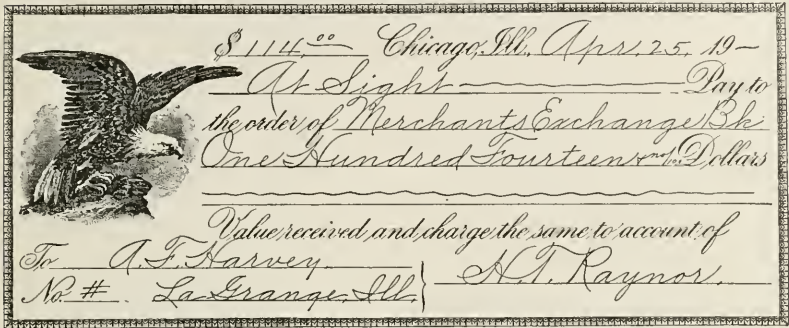 $ 114.00 Chicago, Ill. Apr. 25, 19–
At Sight Pay to
the order of Merchants Exchange Bk
One Hundred Fourteen & no/100 Dollars
Value received and charge the same to account of
To A. F. Harvey
No. # La Grange, Ill. H. T. Raynor.